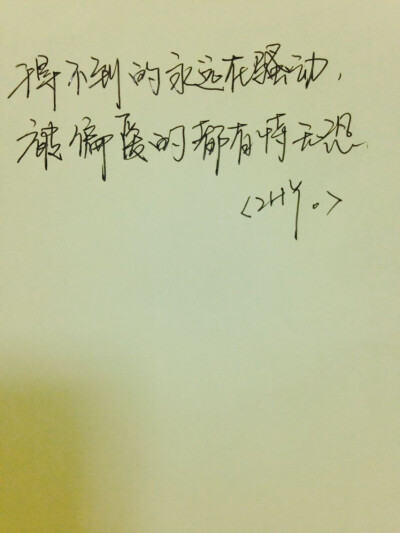 得不到的永远在骚动,
被偏爱的都有恃无恐
<ZHY。>